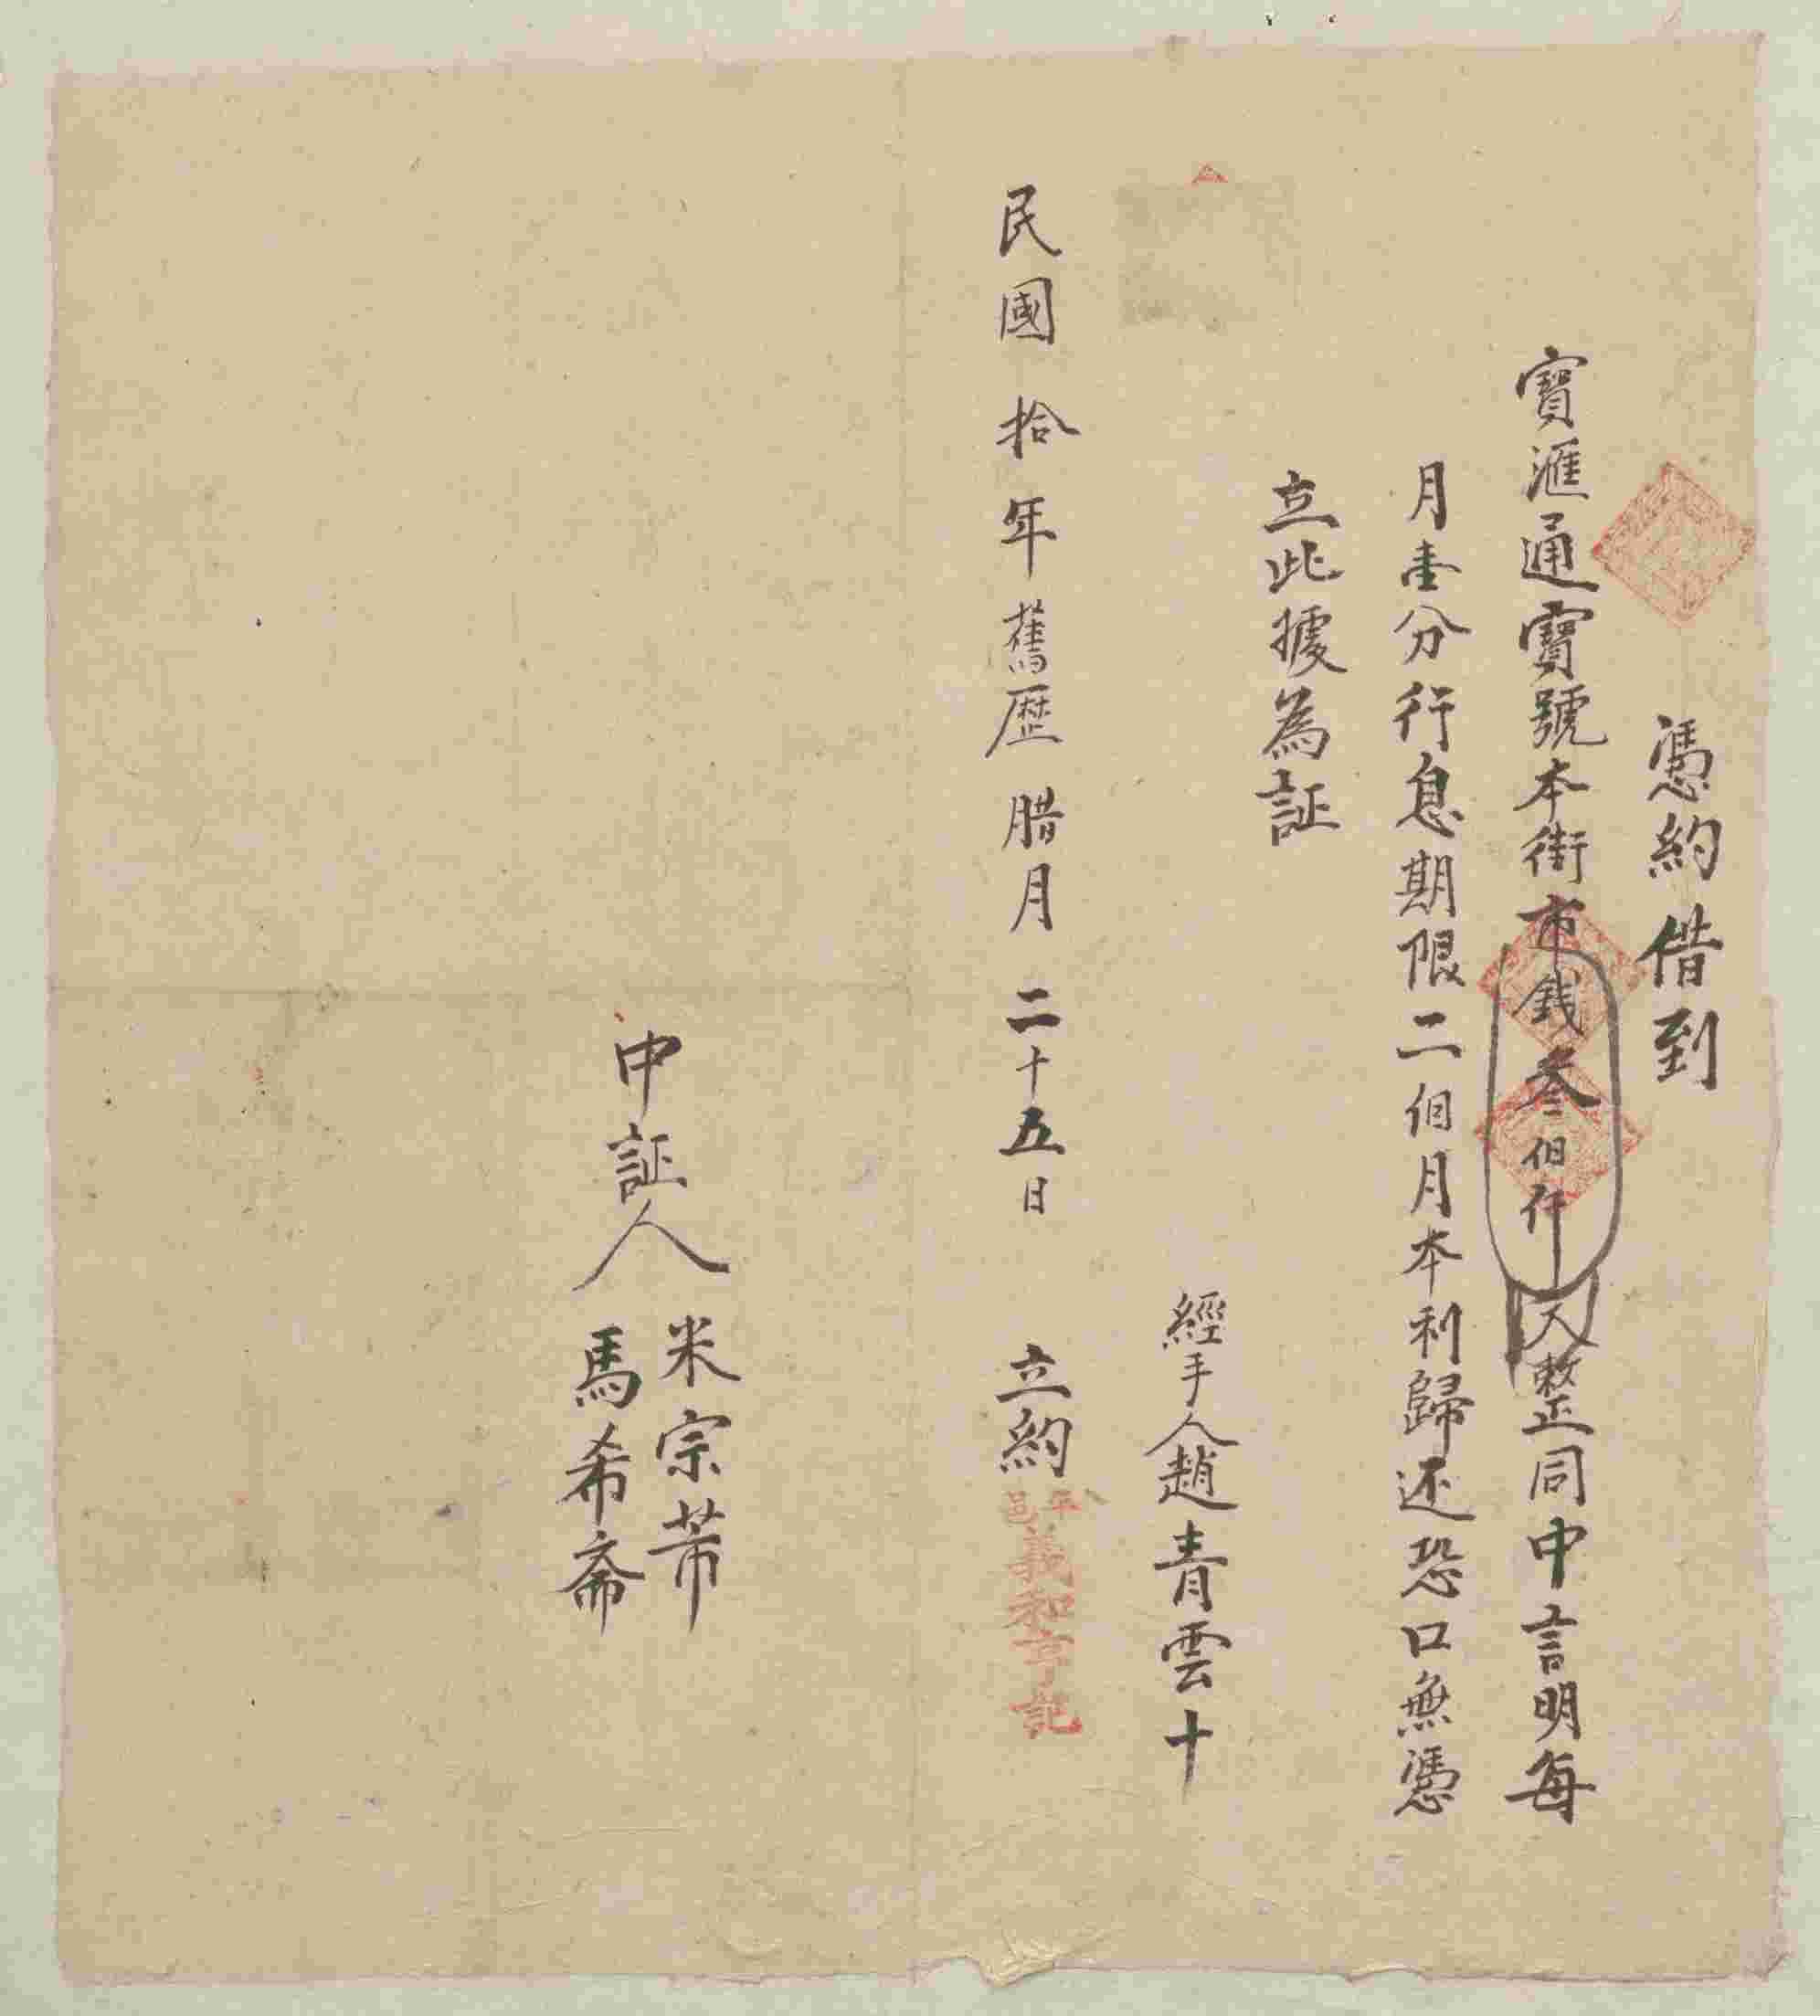 憑約借到
寶滙通寶號本街市銭叁佰仟文整同中言明每
月壹分行息期限二個月本利歸还恐口無憑
立此據為証
經手人趙青雲十
民國拾年舊歷腊月二十五日 立約
平邑義和亨記
中証人 米宗芾
馬希斋